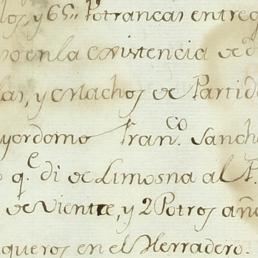 dos, y 65,, Potrancas entreg
vo en la existencia de d
las, y Machos de Partid
ayordomo Fran.co Sanch
o q.e di de Limosna al P.
de Vientre, y 2 Potros año
queros en el Herradero.